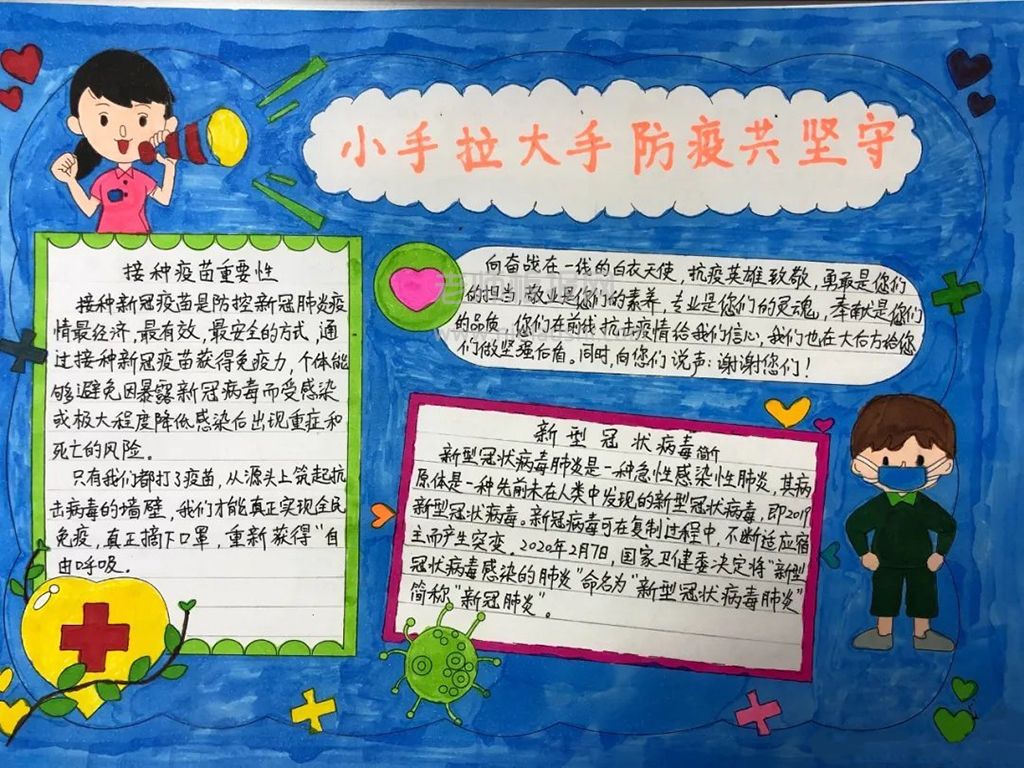 小手拉大手防疫共坚守
接种疫苗重要性
接种新冠疫苗是防控新冠肺炎疫
情最经济,最有效,最安全的方式,通
过接种新冠疫苗获得免疫力,个体能
够避免因暴露新冠病毒而受感染
或极大程度降低感染后出现重症和
死亡的风险。
只有我们都打了疫苗,从源头上筑起抗
击病毒的墙壁,我们才能真正实现全民
免疫,真正摘下口罩,重新获得“自
由呼吸。
向奋战在一线的白衣天使,抗疫英雄致敬,勇敢是你们
的担当,敬业是你们的素养,专业是您们的灵魂,奉献是您们
的品质,您们在前线抗击疫情给我们信心,我们也在大后方给您
们做坚强后盾。同时,向您们说声:谢谢您们!
新型冠状病毒简
新型冠状病毒肺炎是一种急性感染性肺炎,其病
原体是一种先前未在人类中发现的新型冠状病毒,即2019
新型冠状病毒。新冠病毒可在复制过程中,不断适应宿
主而产生突变。2020年2月7日,国家卫健委决定将“新型
冠状病毒感染的肺炎”命名为“新型冠状病毒肺炎”
简称“新冠肺炎”。